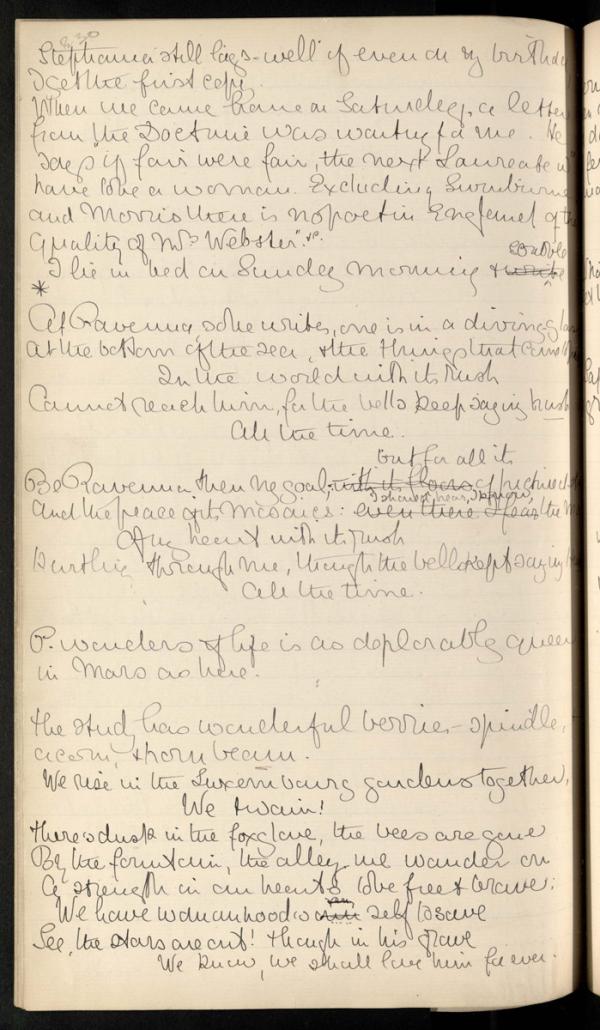 Stephania still lags - well if even on my birthda
I get the first copy.
When we came home on Saturday, a letter
from the Doctrine was waiting for me. He
says "if fair were fair, the next Laureate w
have to be a woman. Excluding Swinburne
and Morris there is no poet in England of the
quality of Mrs Webster". &c.
I lie in bed on Sunday morning & scribble
*
At Ravenna, so he writes, one is in a diving-
At the bottom of the sea, & the things that
In the world with its rush
Cannot reach him, for the bells keep saying hush
All the time.
but for all its
Be Ravenna then my goal; with its floors of pictured
I shouldst hear, I know,
And the peace of its mosaics: even there I fear the
Of my heart with its rush
Hurtling through me, though the bells kept saying
All the time.
P. wonders if life is as deplorably queer
in Mars as here.
The study has wonderful berries - spindle,
acorn, & hornbeam.
We rise in the Luxembourg gardens together,
We twain!
There's dusk in the foxglove, the bees are gone
By the fountain, the alley we wander on
A strength in our hearts to be free & brave:
We have womanhood's own self to save
See, the stars are out! though in his grave
We know, we shall love him for ever.